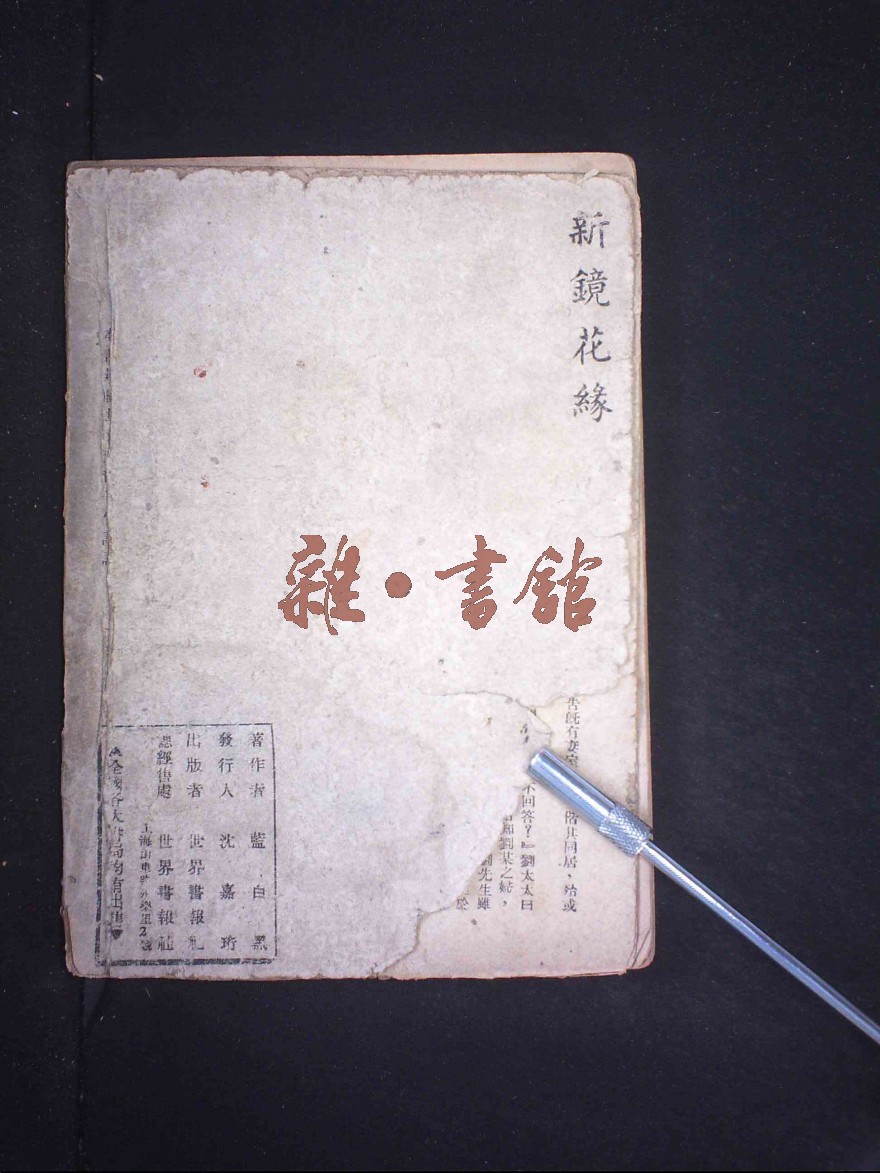 新鏡花緣
雜·書館
告既有妻室
偕其同居，給或
不回答？』劉太太曰
劉某之婦，
劉先生雖
著作者 藍白黑
發行人 沈嘉珩
出版者 世界書報社
總經售處 世界書報社
上海山東路
2號
全國各大書局均有出售